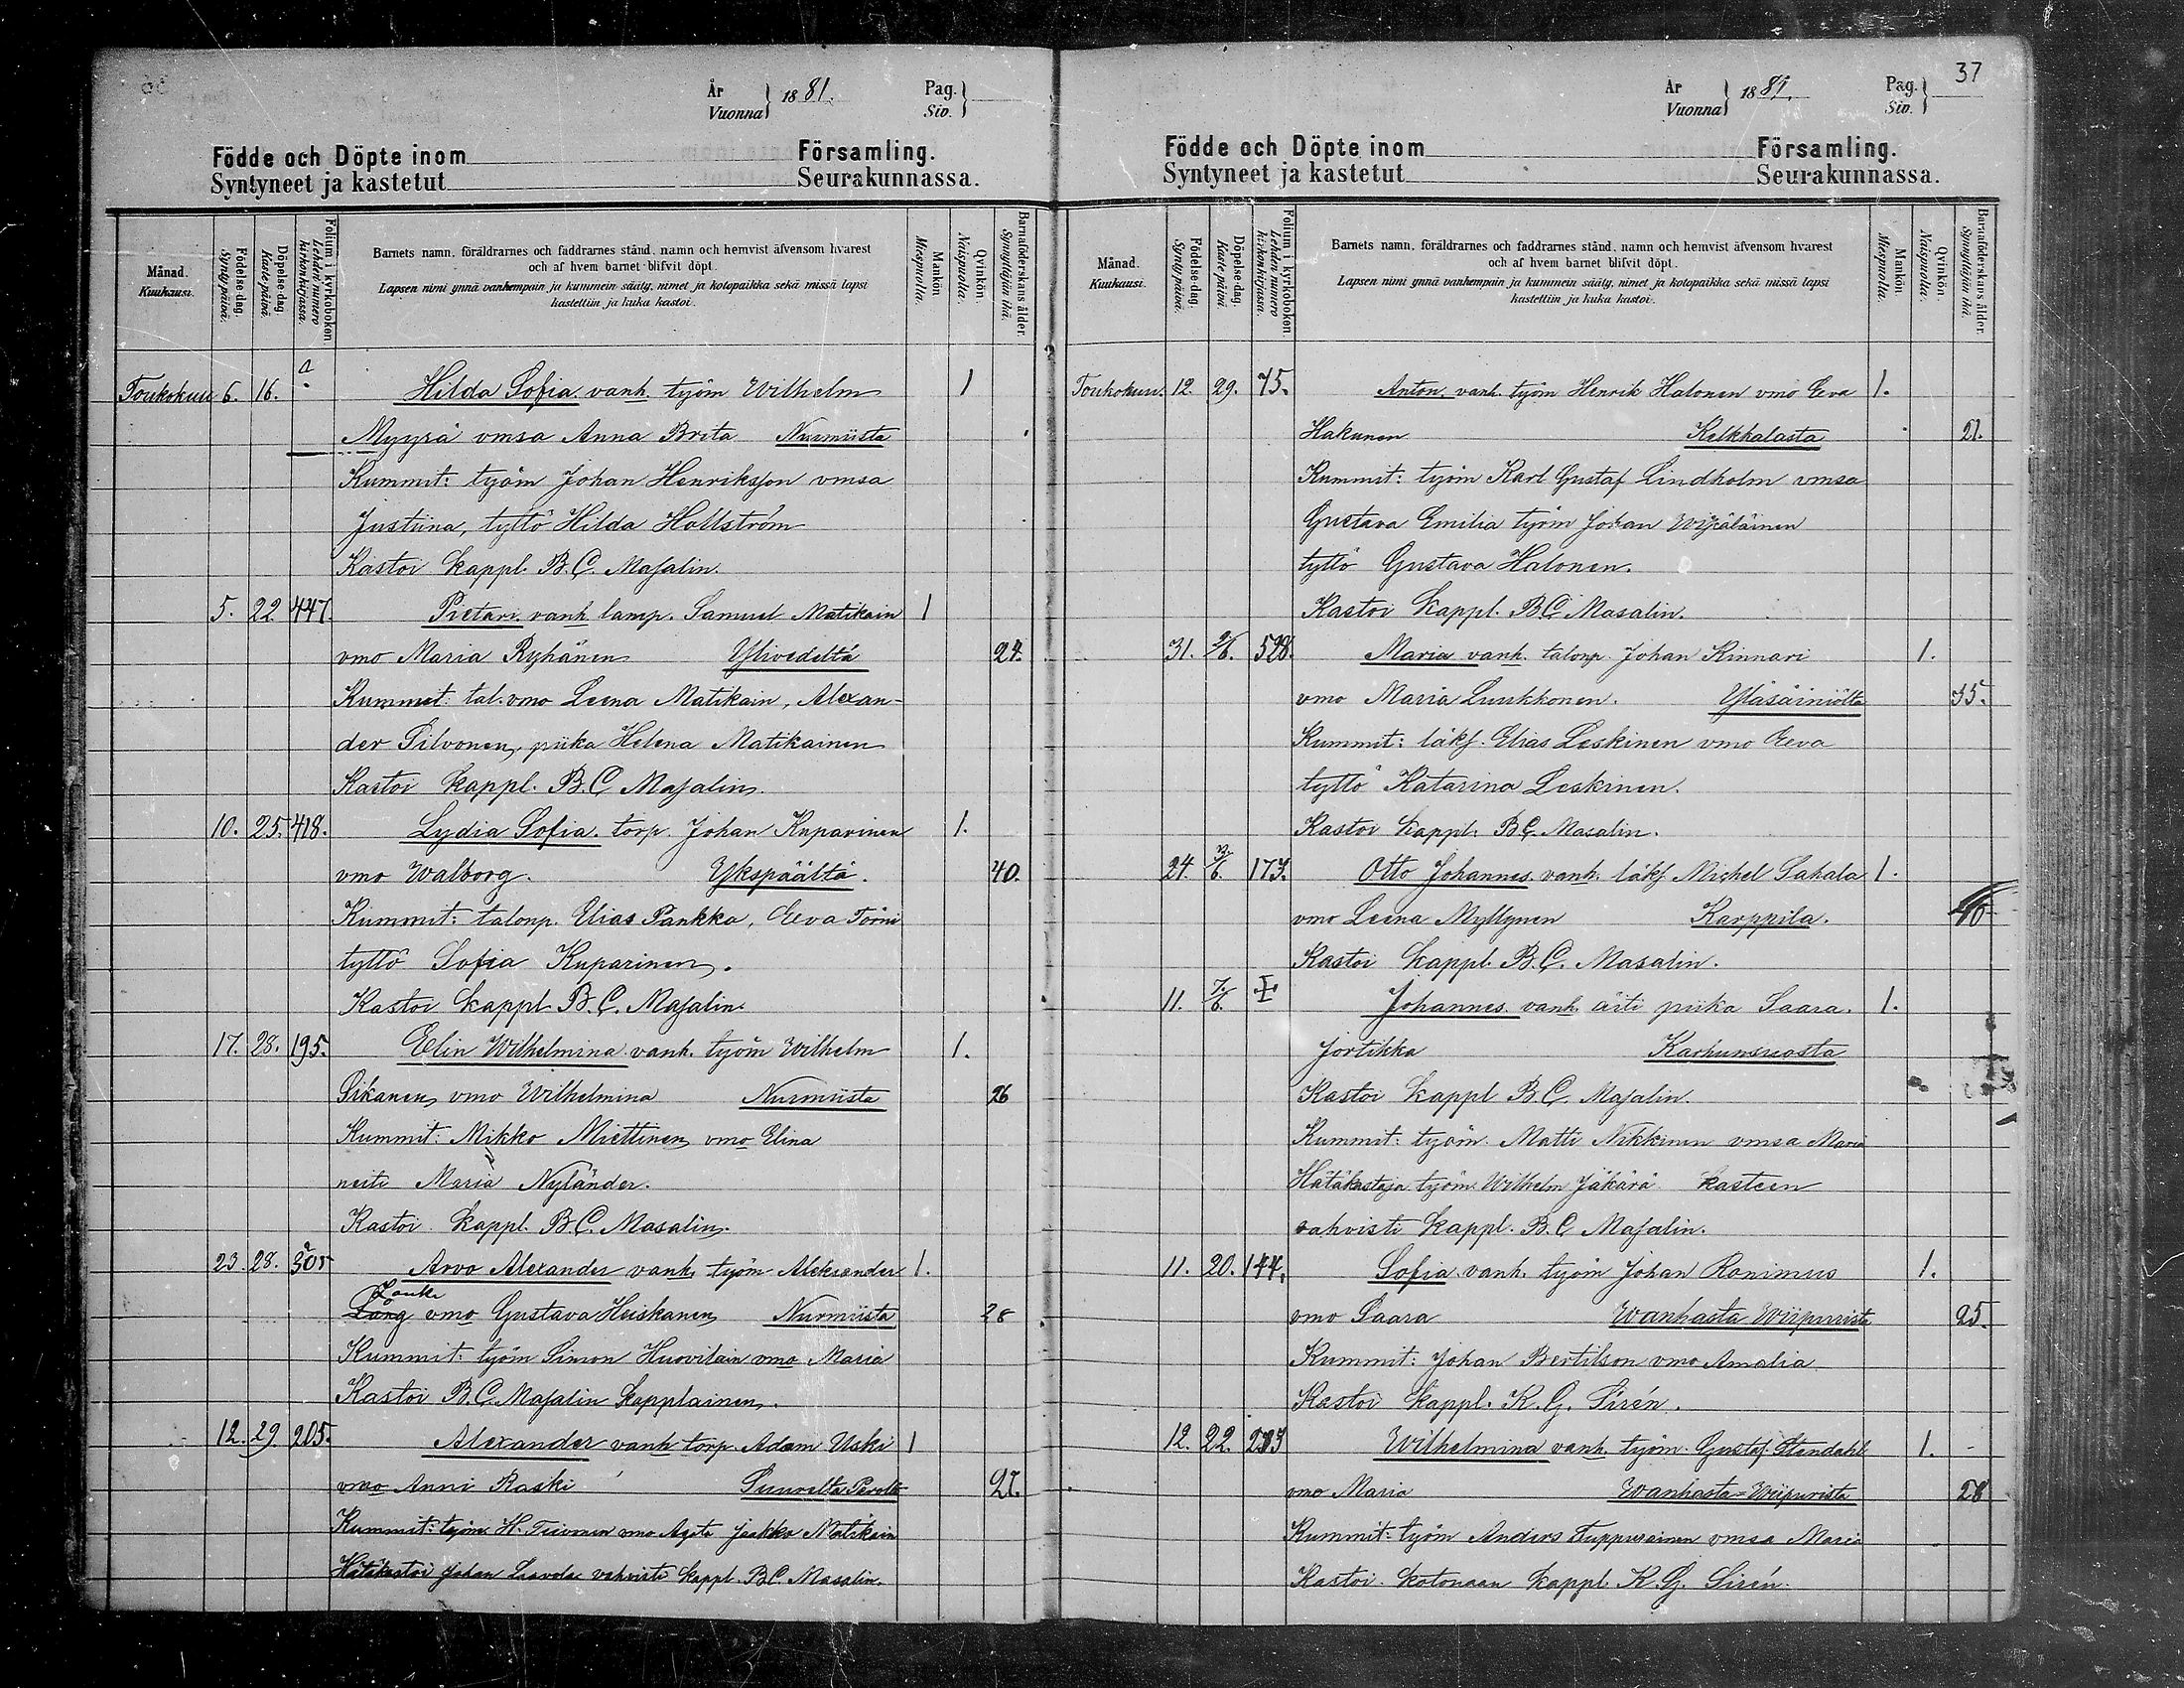 År
Vuonna } 1881.
Pag.
Siv. }
Födde och Döpte inom Församling.
Syntyneet ja kastetut Seurakunnassa.
Månad. Kuukausi.
Födelse-dag. Syntypäivä.
Döpelse-dag. Kastepäivä.
Folium i kyrkoboken. Lehden numero kirkonkirjassa.
Barnets namn, föräldrarnes och faddrarnes stånd, namn och hemvist äfvensom hvarest
och af hvem barnet blifvit döpt.
Lapsen nimi ynnä vanhempain ja kummein sääty, nimet ja kotopaikka sekä missä lapsi
kastettiin ja kuka kastoi.
Mankön. Miespuolia.
Qvinkön. Naispuolia.
Barnaföderskans ålder. Synnyttäjän ikä.
Toukokuu 6. 16. Hilda Sofia vanh. työm Wilhelm 1
Myyrä vmsa Anna Brita Nurmista
Kummit: työm Johan Henriksson vmsa
Justiina, tyttö Hilda Hollström
Kastoi kappl. B.C. Masalin.
5. 22 447. Pietari vanh lamp. Samuel Matikain 1
vmo Maria Ryhänen Ylivedeltä 24.
Kummit: tal. vmo Leena Matikain, Alexan-
der Pilvonen, piika Helena Matikainen
Kastoi kappl. B.C. Masalin.
10. 25. 418. Lydia Sofia torp. Johan Kuparinen 1.
vmo Walborg. Ykspäältä. 40.
Kummit: talonp. Elias Pankka, Eeva Törni
tyttö Sofia Kuparinen.
Kastoi kappl B.C. Masalin.
17. 28. 195. Elin Wilhelmina vanh. työm Wilhelm 1.
Sikanen vmo Wilhelmina Nurmista 26
Kummit: Mikko Miettinen vmo Elina
neiti Maria Nyländer.
Kastoi kappl. B.C. Masalin.
23. 28. 305 Arvo Alexander vanh. työm Aleksander 1.
Lång vmo Gustava Heiskanen Nurmista 28
Kummit: työm Simon Huovilain vmo Maria
Kastoi B.C. Masalin kapplainen.
12. 29. 205. Alexander vanh torp. Adam Uski 1
vmo Anni Raski Suurelta Perolta 27.
Kummit: työm H. Tiivonen vmo Agata Jaakko Matikain
Hätäkastoi Johan Laavola vahvisti kappl. B.C. Masalin.
37
År
Vuonna } 1881.
Pag.
Siv. }
Födde och Döpte inom Församling.
Syntyneet ja kastetut Seurakunnassa.
Månad. Kuukausi.
Födelse-dag. Syntypäivä.
Döpelse-dag. Kastepäivä.
Folium i kyrkoboken. Lehden numero kirkonkirjassa.
Barnets namn, föräldrarnes och faddrarnes stånd, namn och hemvist äfvensom hvarest
och af hvem barnet blifvit döpt.
Lapsen nimi ynnä vanhempain ja kummein sääty, nimet ja kotopaikka sekä missä lapsi
kastettiin ja kuka kastoi.
Mankön. Miespuolia.
Qvinkön. Naispuolia.
Barnaföderskans ålder. Synnyttäjän ikä.
Toukokuu. 12. 29. 75. Anton vanh. työm Henrik Halonen vmo Eva 1.
Hakunen Kelkkalasta 21.
Kummit: työm Karl Gustaf Lindholm vmsa
Gustava Emilia työm Johan
tyttö Gustava Halonen.
Kastoi kappl. B.C. Masalin.
31. 2/6. 528. Maria vanh. talonp. Johan Kinnari 1.
vmo Maria Luukkonen. Yläsäiniöltä 35.
Kummit: läks. Elias Leskinen vmo Eeva
tyttö Katarina Leskinen.
Kastoi kappl. B.C. Masalin.
24. 173. Otto Johannes vanh. läks. Michel Sahala 1.
vmo Leena Myllynen Karppila. 40
Kastoi kappl. B.C. Masalin.
11. 7/6. Johannes vanh. äiti piika Saara 1.
Jortikka Karhunsuosta
Kastoi kappl B.C. Masalin.
Kummit: työm. Matti Nikkinen vmsa Maria
Hätäkastaja työm. Wilhelm Jäkärä kasteen
vahvisti kappl. B.C. Masalin.
11. 20. 144. Sofia vanh. työm Johan Ronimus 1.
vmo Saara Wanhasta Wiipurista 25.
Kummit: Johan Bertilson vmo Amalia
Kastoi kappl. K.G. Sirén.
12. 22. Wilhelmina vanh. työm. Gustaf Stendahl 1.
vmo Maria Wanhasta-Wiipurista 28
Kummit: työm Anders Tuppurainen vmsa Maria
Kastoi kotonaan kappl. K.G. Sirén.